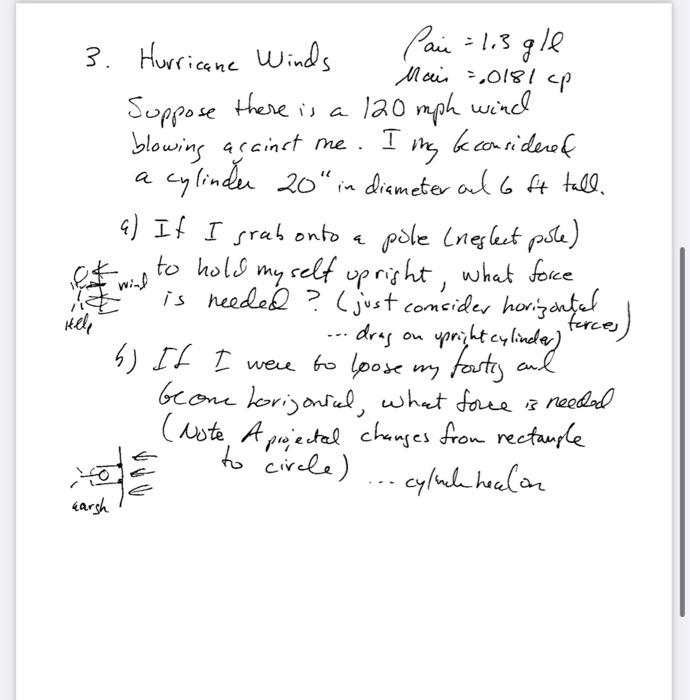 3. Hurricane Winds
ρair = 1.3 g/l
μair = .0181 cp
Suppose there is a 120 mph wind
blowing against me. I my be considered
a cylinder 20" in diameter and 6 ft tall.
a) If I grab onto a pole (neglect pole)
to hold myself upright, what force
is needed? (just consider horizontal forces)
... drag on upright cylinder)
wind
Help
b) If I were to loose my footing and
become horizontal, what force is needed
(Note A projected changes from rectangle
to circle)
... cylinder head on
aargh